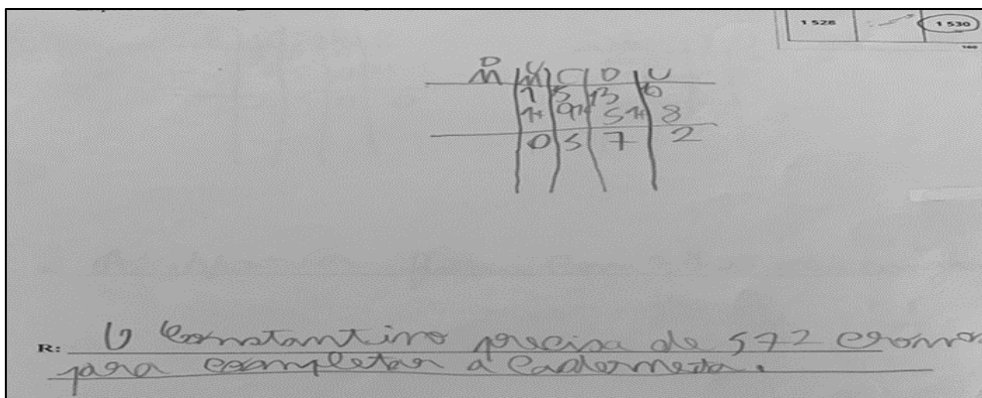 1 528 1 530
DM M C D U
1 5 13 0
1+ 9 1+ 5 1+ 8
0 5 7 2
R: O Constantino precisa de 572 cromos
para completar a caderneta.